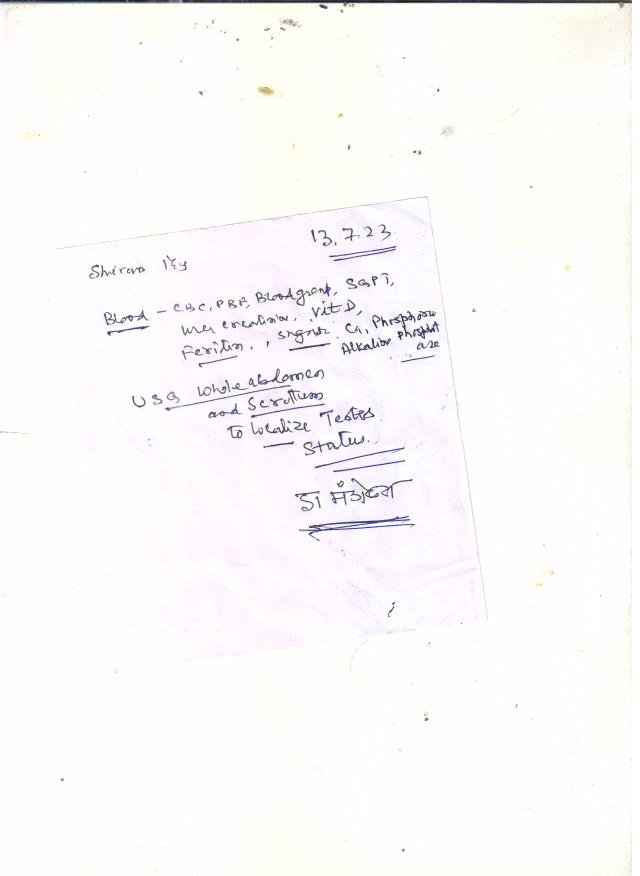 13.7.23
Blood - CBC, PBF, Blood group, SGPT,
creatinine, Vit D,
Feritin, Ca, Phosphorus
Alkaline Phosphat
ase
USG Whole abdomen
and Scrotum
to Localize Testes
Status.
डा